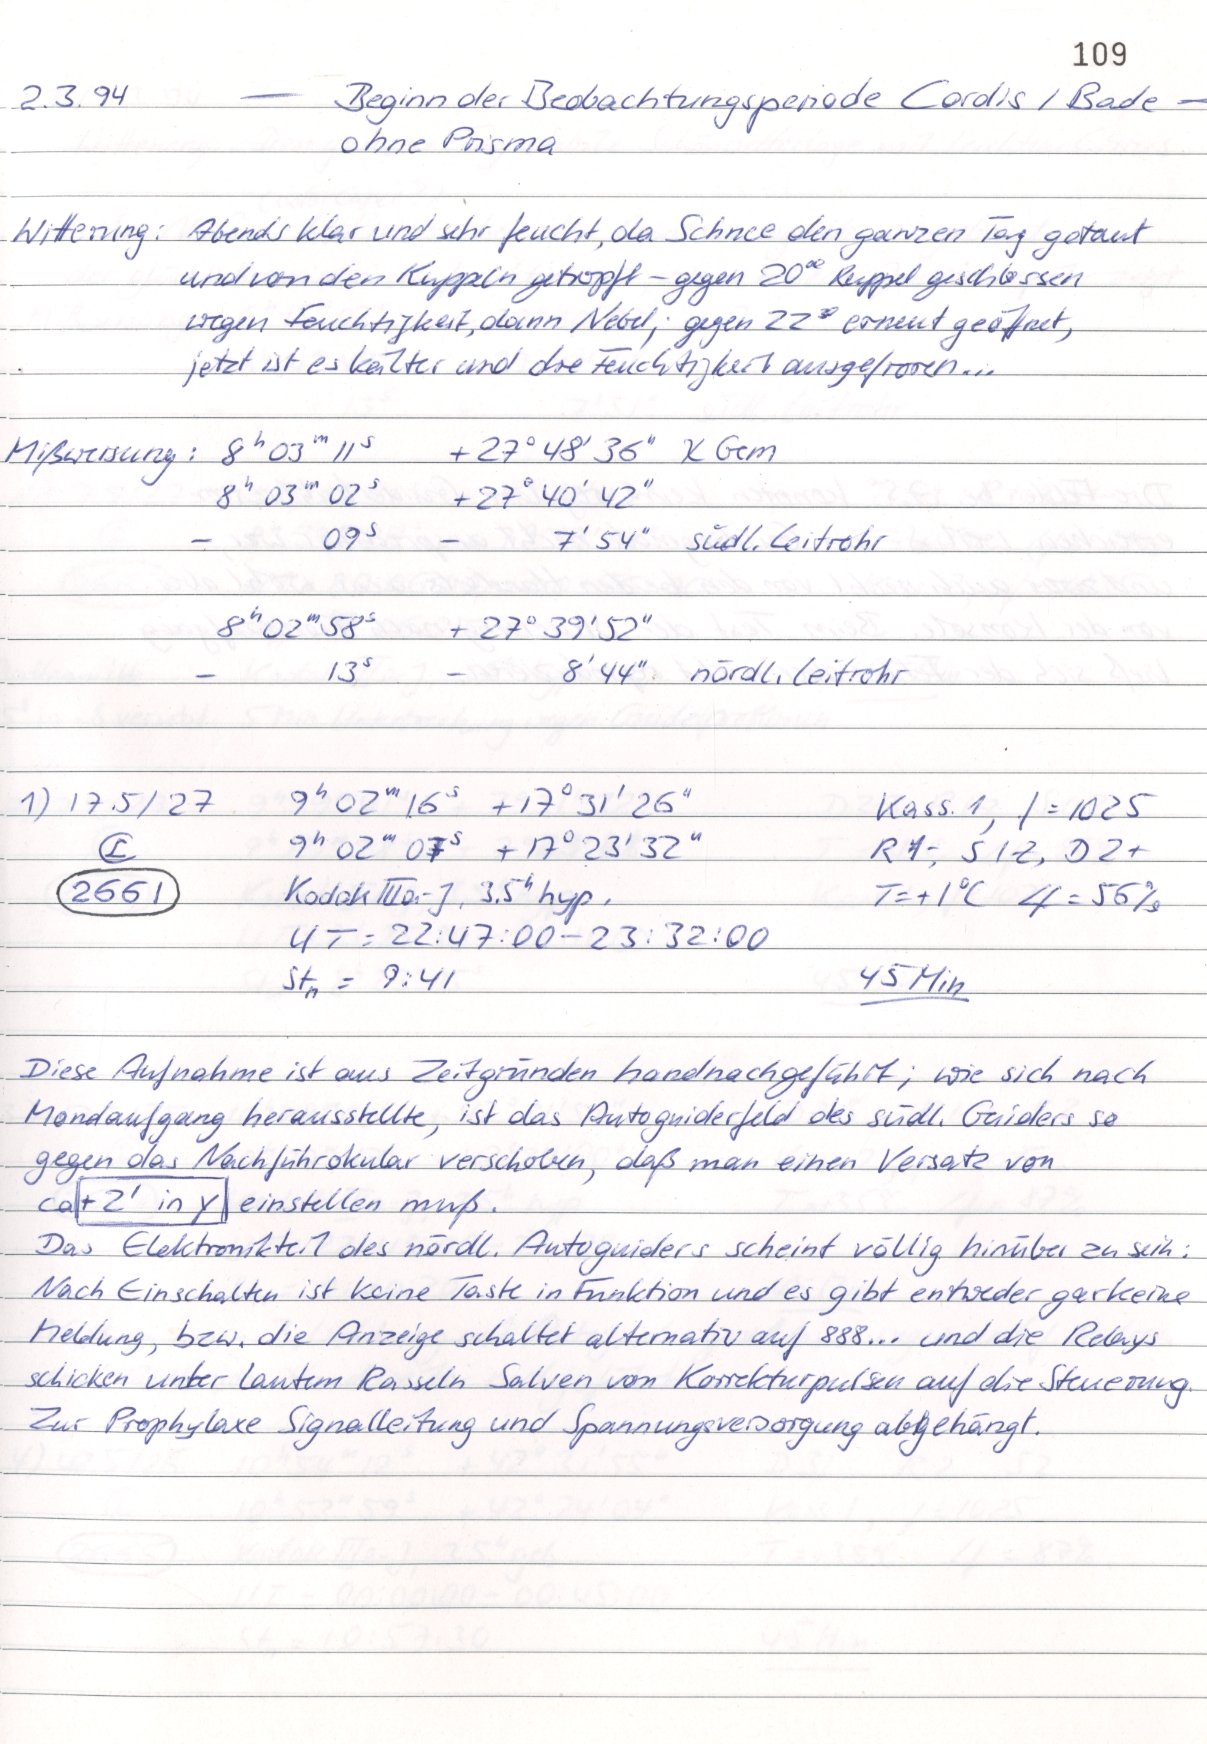 109
2.3.94 — Beginn der Beobachtungsperiode Cordis / Bade —
ohne Prisma
Witterung: Abends klar und sehr feucht, da Schnee den ganzen Tag getaut
und von den Kuppeln getropft – gegen 20⁰⁰ Kuppel geschlossen
wegen Feuchtigkeit, dann Nebel; gegen 22 erneut geöffnet,
jetzt ist es kälter und die Feuchtigkeit ausgefroren...
Mißweisung: 8ʰ 03ᵐ 11ˢ +27° 48' 36" χ Gem
8ʰ 03ᵐ 02ˢ +27° 40' 42"
– 09ˢ – 7' 54" südl. Leitrohr
8ʰ 02ᵐ 58ˢ +27° 39' 52"
– 13ˢ – 8' 44" nördl. Leitrohr
1) 17.5/27 9ʰ 02ᵐ 16ˢ +17° 31' 26" Kass. 1, f = 1025
I 9ʰ 02ᵐ 07ˢ +17° 23' 32" R 1-, S 1-2, D 2+
2661 Kodak IIIa-J, 3.5ʰ hyp. T = +1°C = 56%
UT = 22:47:00 – 23:32:00
Stₙ = 9:41 45 Min
Diese Aufnahme ist aus Zeitgründen handnachgeführt; wie sich nach
Mondaufgang herausstellte, ist das Autoguiderfeld des südl. Guiders so
gegen das Nachführokular verschoben, daß man einen Versatz von
ca + 2' in y einstellen muß.
Das Elektronikteil des nördl. Autoguiders scheint völlig hinüber zu sein:
Nach Einschalten ist keine Taste in Funktion und es gibt entweder garkeine
Meldung, bzw. die Anzeige schaltet alternativ auf 888... und die Relays
schicken unter lautem Rasseln Salven von Korrekturpulsen auf die Steuerung.
Zur Prophylaxe Signalleitung und Spannungsversorgung abgehängt.